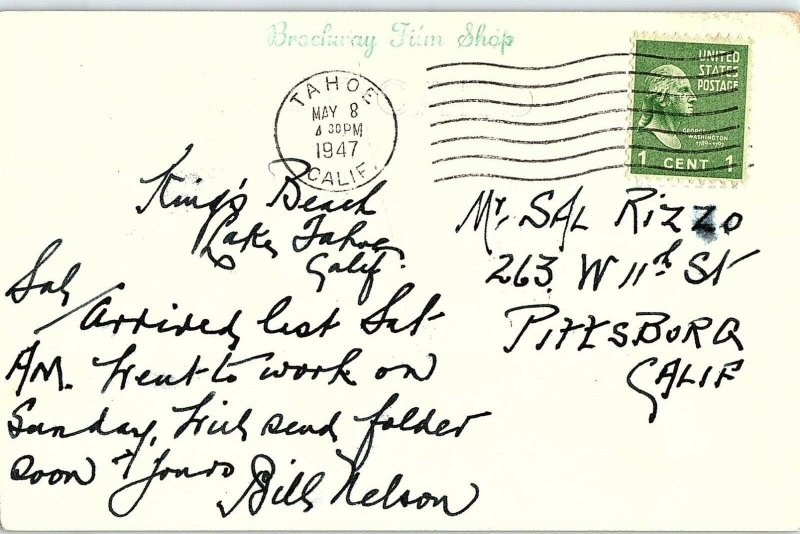 Brockway Film Shop
UNITED
STATES
POSTAGE
GEORGE
WASHINGTON
1789-1797
1 CENT 1
TAHOE
MAY 8
4 30 PM
1947
CALIF.
King's Beach
Lake Tahoe
Calif.
Sal,
Arrived last Sat
AM. Went to work on
Sunday, Will send folder
soon
Bill Nelson
Mr. SAL RIZZO
263 W 11th St
PITTSBURG
CALIF